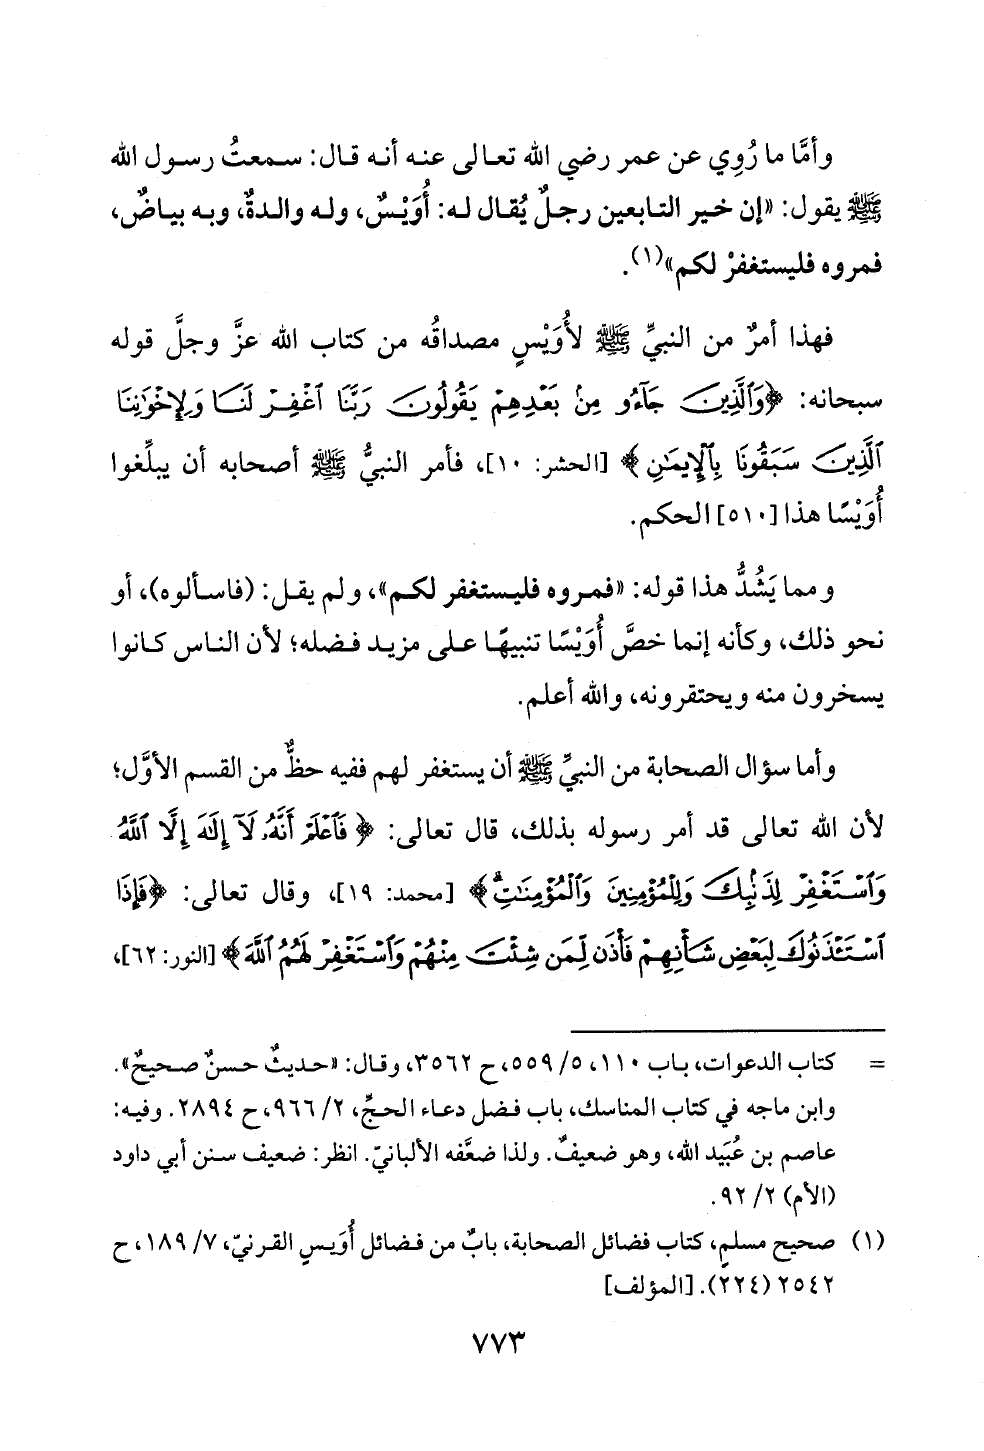 وأمَّا ما رُوِي عن عمر رضي الله تعالى عنه أنه قال: سمعتُ رسول الله
ﷺ يقول: «إن خير التابعين رجلٌ يُقال له: أُوَيْسٌ، وله والدةٌ، وبه بياضٌ،
فمروه فليستغفرْ لكم»(١).
فهذا أمرٌ من النبيِّ ﷺ لأُوَيْسٍ مصداقُه من كتاب الله عزَّ وجلَّ قوله
سبحانه: ﴿وَٱلَّذِينَ جَآءُو مِنۢ بَعْدِهِمْ يَقُولُونَ رَبَّنَا ٱغْفِرْ لَنَا وَلِإِخْوَٰنِنَا
ٱلَّذِينَ سَبَقُونَا بِٱلْإِيمَٰنِ﴾ [الحشر: ١٠]، فأمر النبيُّ ﷺ أصحابه أن يبلِّغوا
أُوَيْسًا هذا [٥١٠] الحكم.
ومما يَشُدُّ هذا قوله: «فمروه فليستغفر لكم»، ولم يقل: (فاسألوه)، أو
نحو ذلك، وكأنه إنما خصَّ أُوَيْسًا تنبيهًا على مزيد فضله؛ لأن الناس كانوا
يسخرون منه ويحتقرونه، والله أعلم.
وأما سؤال الصحابة من النبيِّ ﷺ أن يستغفر لهم ففيه حظٌّ من القسم الأوَّل؛
لأن الله تعالى قد أمر رسوله بذلك، قال تعالى: ﴿فَٱعْلَمْ أَنَّهُۥ لَآ إِلَٰهَ إِلَّا ٱللَّهُ
وَٱسْتَغْفِرْ لِذَنۢبِكَ وَلِلْمُؤْمِنِينَ وَٱلْمُؤْمِنَٰتِۗ﴾ [محمد: ١٩]، وقال تعالى: ﴿فَإِذَا
ٱسْتَـْٔذَنُوكَ لِبَعْضِ شَأْنِهِمْ فَأْذَن لِّمَن شِئْتَ مِنْهُمْ وَٱسْتَغْفِرْ لَهُمُ ٱللَّهَ﴾ [النور: ٦٢]،
= كتاب الدعوات، باب ١١٠، ٥/ ٥٥٩، ح ٣٥٦٢، وقال: «حديثٌ حسنٌ صحيحٌ».
وابن ماجه في كتاب المناسك، باب فضل دعاء الحجِّ، ٢/ ٩٦٦، ح ٢٨٩٤. وفيه:
عاصم بن عُبَيد الله، وهو ضعيفٌ. ولذا ضعَّفه الألبانيّ. انظر: ضعيف سنن أبي داود
(الأم) ٢/ ٩٢.
(١) صحيح مسلمٍ، كتاب فضائل الصحابة، بابٌ من فضائل أُوَيسٍ القرنيّ، ٧/ ١٨٩، ح
٢٥٤٢ (٢٢٤). [المؤلف]
٧٧٣